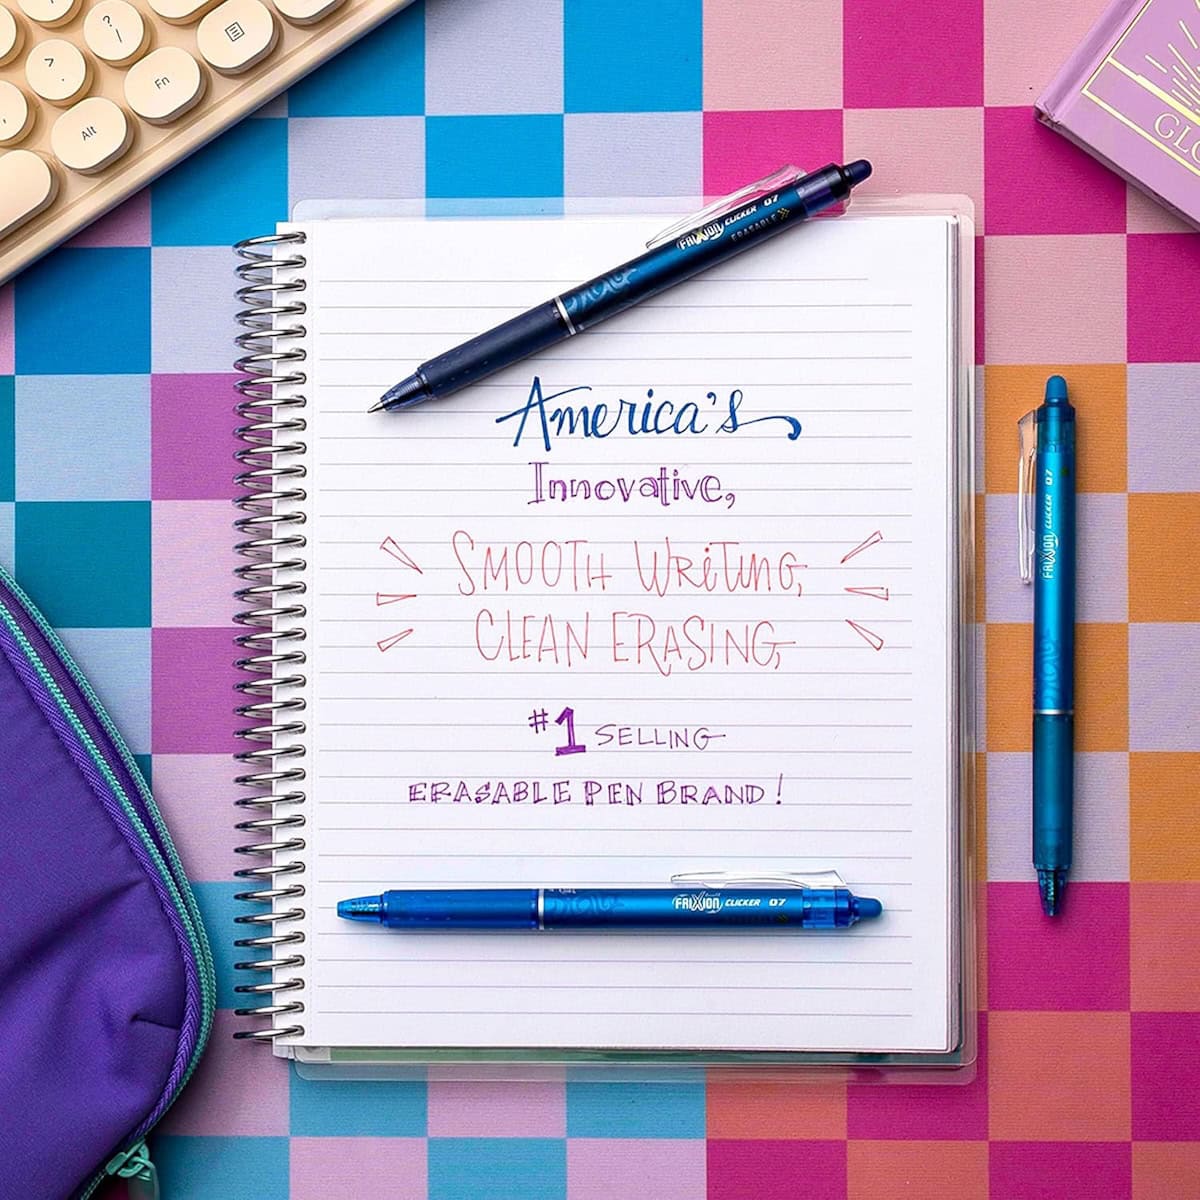 ? /
> .
Fn
,
Alt
GLO
FRIXION CLICKER 07
ERASABLE
America's
Innovative,
SMOOTH WRiTING,
CLEAN ERASING,
#1 SELLING
ERASABLE PEN BRAND!
FRIXION CLICKER 07
FRIXION CLICKER 07